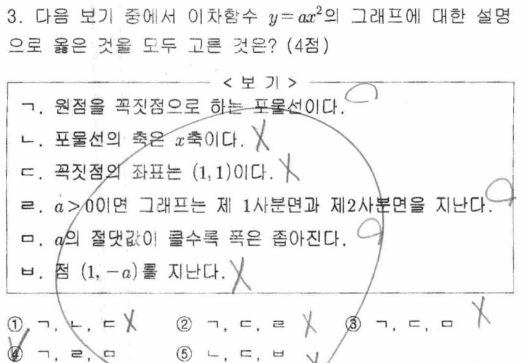 3. 다음 보기 중에서 이차함수 y=ax²의 그래프에 대한 설명
으로 옳은 것을 모두 고른 것은? (4점)
< 보 기 >
ㄱ. 원점을 꼭짓점으로 하는 포물선이다.
ㄴ. 포물선의 축은 x축이다. X
ㄷ. 꼭짓점의 좌표는 (1,1)이다. X
ㄹ. a>0이면 그래프는 제 1사분면과 제2사분면을 지난다.
ㅁ. a의 절댓값이 클수록 폭은 좁아진다.
ㅂ. 점 (1,-a)를 지난다. X
① ㄱ, ㄴ, ㄷ X ② ㄱ, ㄷ, ㄹ X ③ ㄱ, ㄷ, ㅁ X
④ ㄱ, ㄹ, ㅁ ⑤ ㄴ, ㄷ, ㅂ X